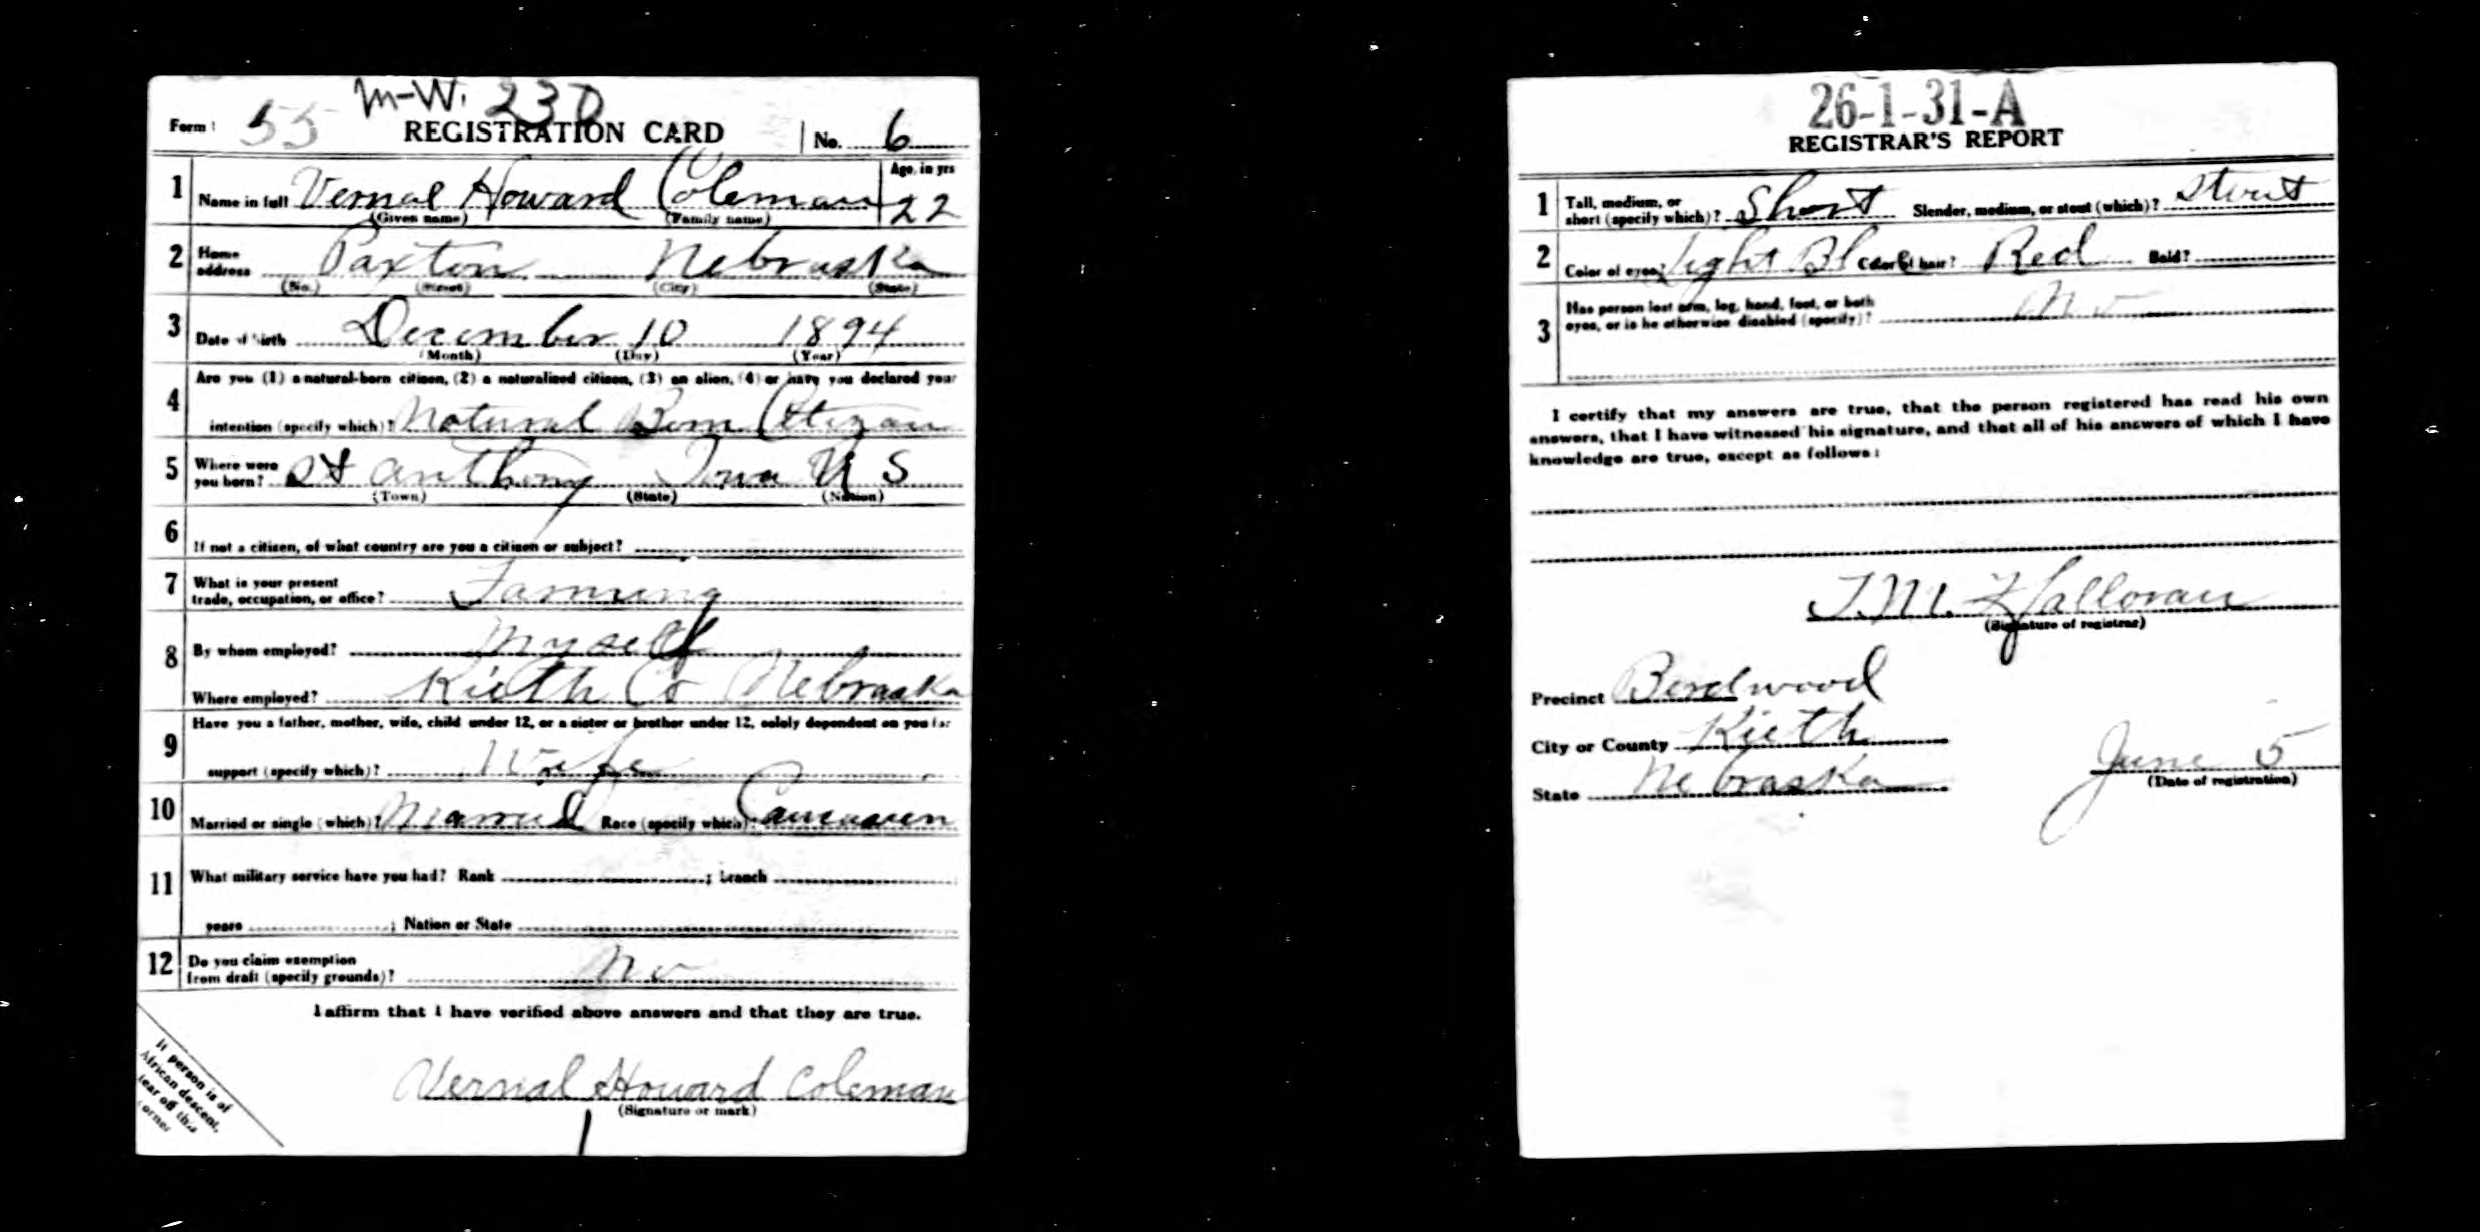 M-W. 230
Form 1 55 REGISTRATION CARD No. 6
1 Name in full Vernal Howard Coleman Age, in yrs 22
(Given name) (Family name)
2 Home address Paxton Nebraska
(No.) (Street) (City) (State)
3 Date of birth December 10 1894
(Month) (Day) (Year)
4 Are you (1) a natural-born citizen, (2) a naturalized citizen, (3) an alien, (4) or have you declared your
intention (specify which)? Natural Born Citizan
5 Where were you born? St Anthony Iowa U S
(Town) (State) (Nation)
6 If not a citizen, of what country are you a citizen or subject?
7 What is your present
trade, occupation, or office? Farming
8 By whom employed? Myself
Where employed? Kieth Co Nebraska
9 Have you a father, mother, wife, child under 12, or a sister or brother under 12, solely dependent on you for
support (specify which)? Wife
10 Married or single (which)? Married Race (specify which)?
11 What military service have you had? Rank ; branch
years ; Nation or State
12 Do you claim exemption
from draft (specify grounds)? No
I affirm that I have verified above answers and that they are true.
Vernal Howard Coleman
(Signature or mark)
If person is of
African descent,
tear off this
corner
26-1-31-A
REGISTRAR'S REPORT
1 Tall, medium, or
short (specify which)? Short Slender, medium, or stout (which)? Stout
2 Color of eyes? Light Bl Color of hair? Red Bald?
3 Has person lost arm, leg, hand, foot, or both
eyes, or is he otherwise disabled (specify)? No
I certify that my answers are true, that the person registered has read his own
answers, that I have witnessed his signature, and that all of his answers of which I have
knowledge are true, except as follows:
Halloran
(Signature of registrar)
Precinct Birdwood
City or County Kieth
State Nebraska
June 5
(Date of registration)